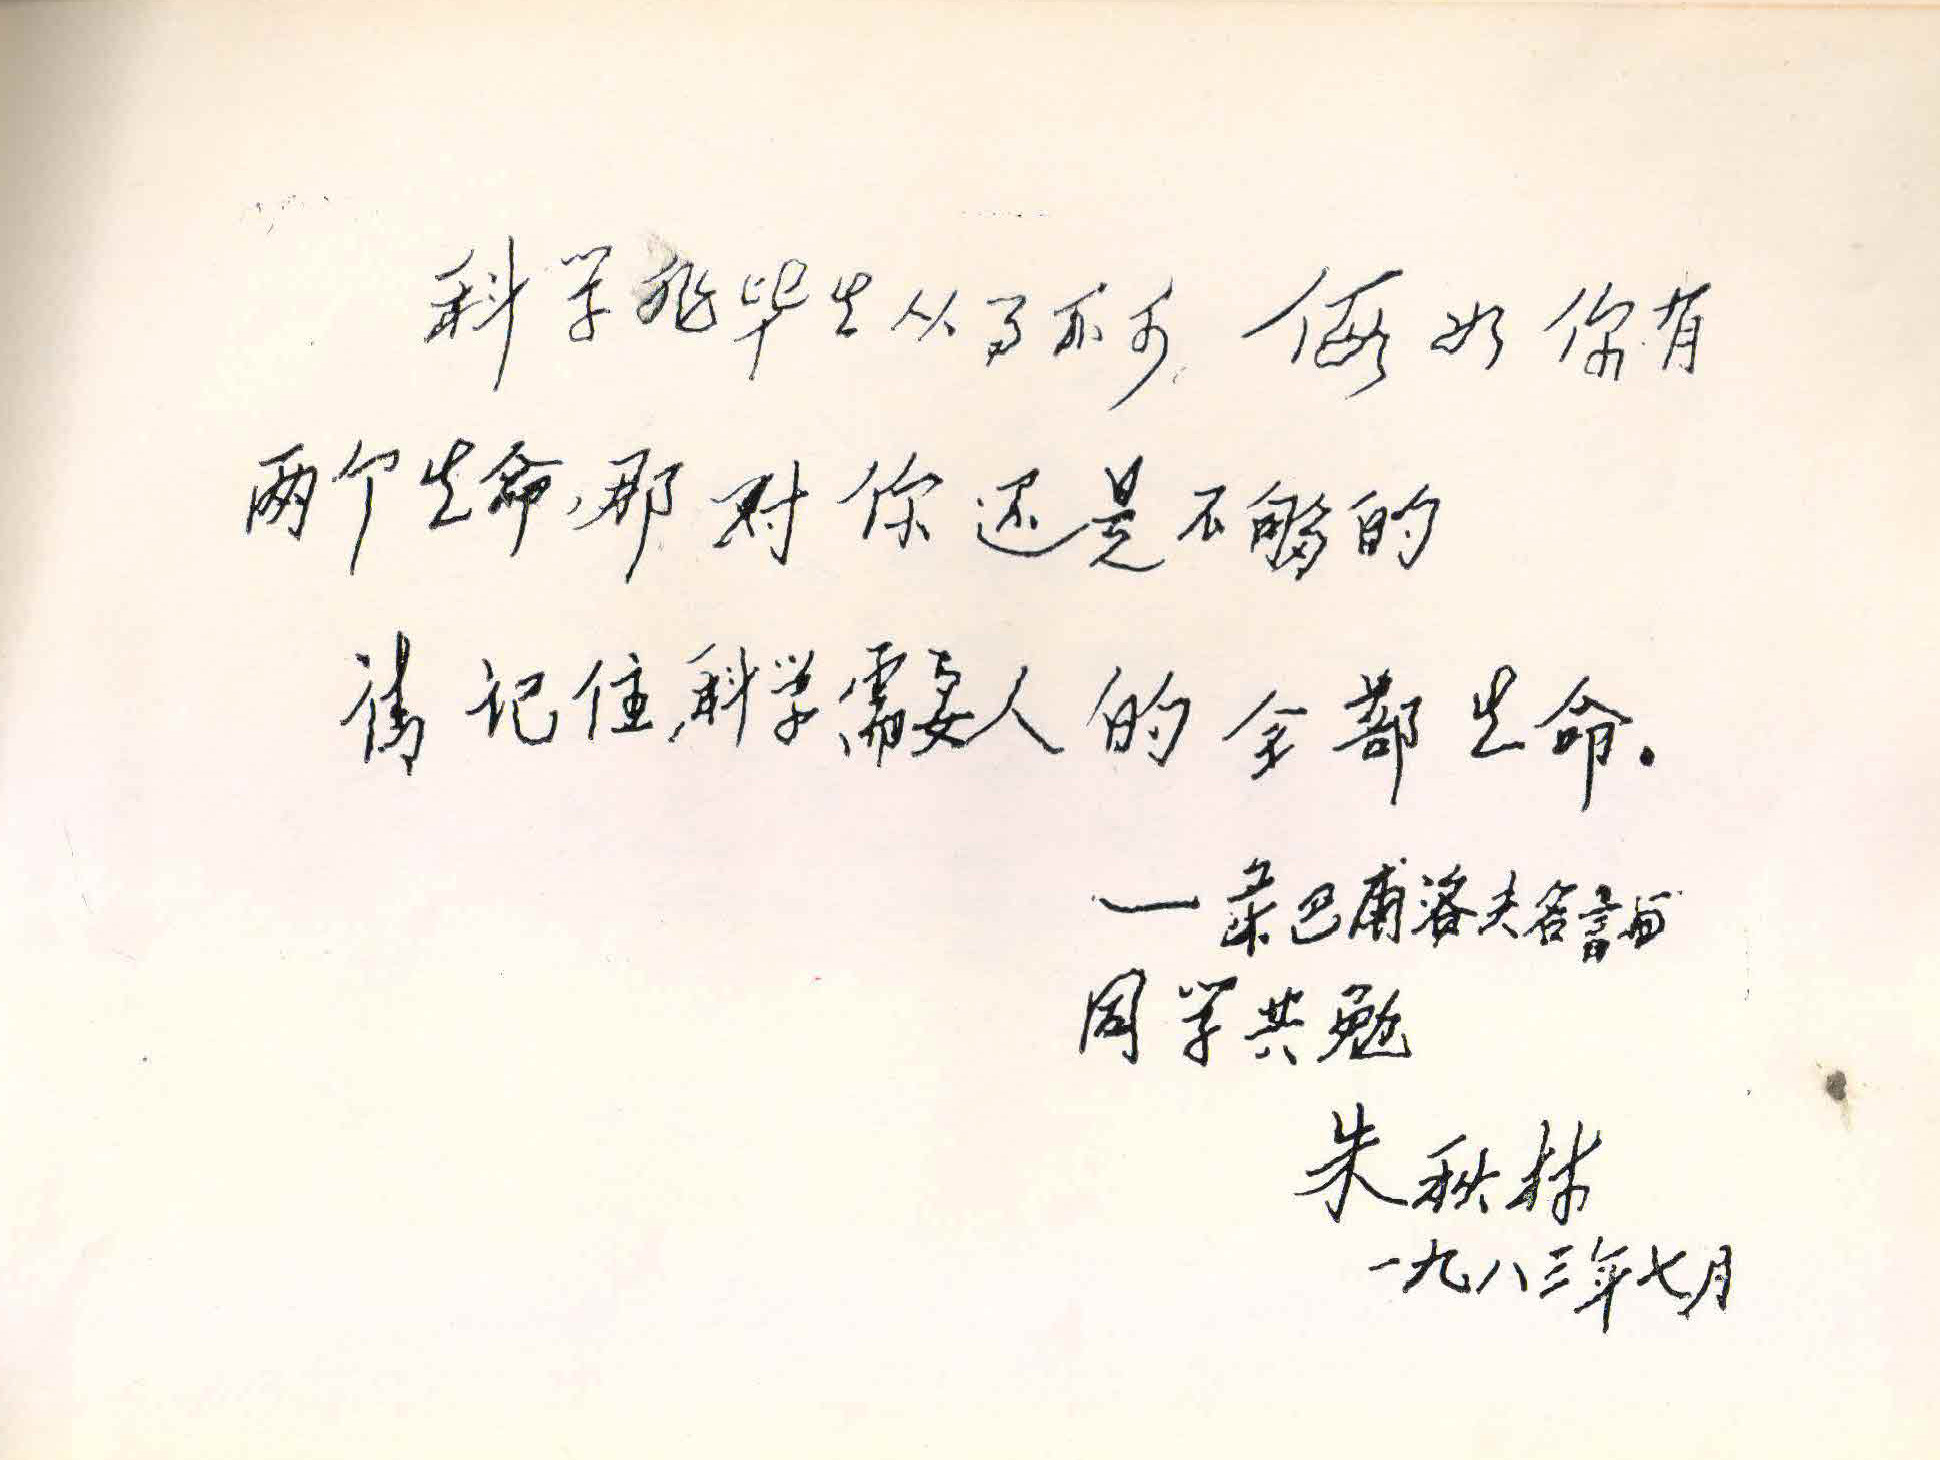 科学非毕生从事不可，假如你有
两个生命，那对你还是不够的
请记住，科学需要人的全部生命.
一录巴甫洛夫名言与
同学共勉
朱秋林
一九八三年七月